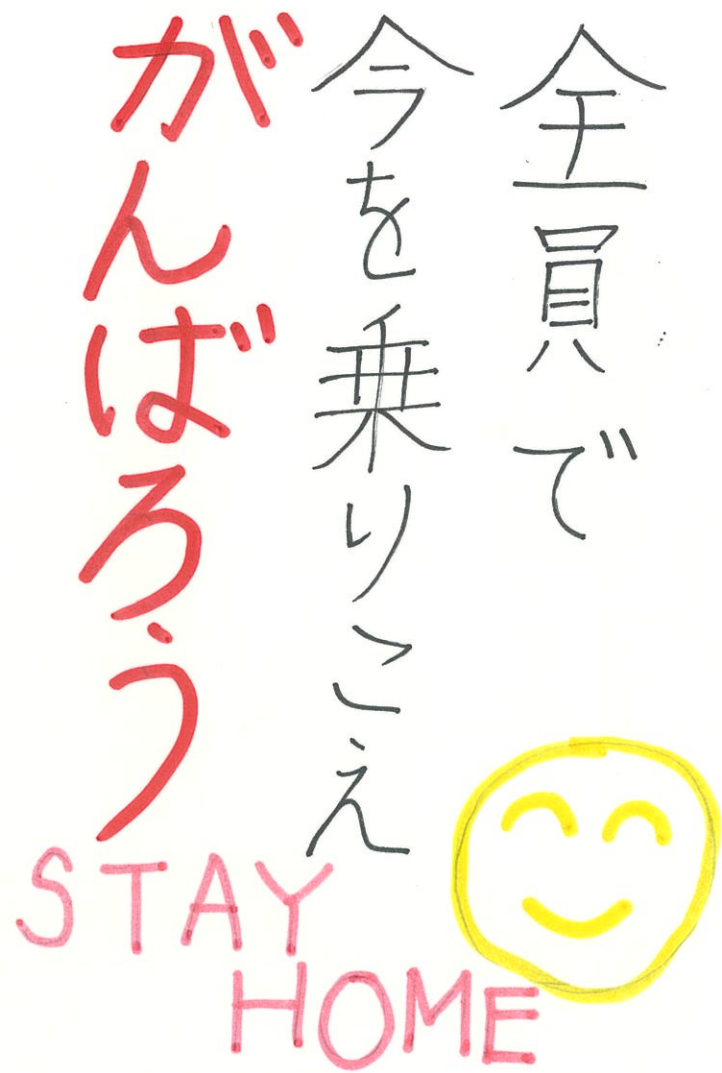 全員で
今を乗りこえ
がんばろう
STAY
HOME